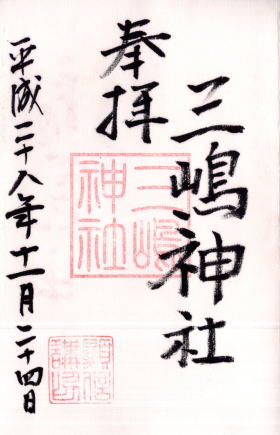 三嶋神社
奉拝
三嶋
神社
平成二十八年十一月二十四日